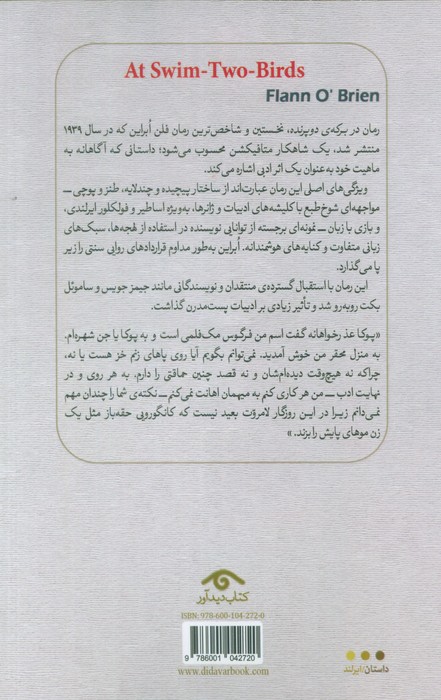 At Swim-Two-Birds
Flann O' Brien
رمان در برکه‌ی دوپرنده، نخستین و شاخص‌ترین رمان فلن اُبراین که در سال ۱۹۳۹
منتشر شد، یک شاهکار متافیکشن محسوب می‌شود؛ داستانی که آگاهانه به
ماهیت خود به عنوان یک اثر ادبی اشاره می‌کند.
ویژگی‌های اصلی این رمان عبارت‌اند از ساختار پیچیده و چندلایه، طنز و پوچی ــ
مواجهه‌ای شوخ‌طبع با کلیشه‌های ادبیات و ژانرها، به‌ویژه اساطیر و فولکلور ایرلندی،
و بازی با زبان ــ نمونه‌ای برجسته از توانایی نویسنده در استفاده از لهجه‌ها، سبک‌های
زبانی متفاوت و کنایه‌های هوشمندانه. اُبراین به‌طور مداوم قراردادهای روایی سنتی را زیر
پا می‌گذارد.
این رمان با استقبال گسترده‌ی منتقدان و نویسندگانی مانند جیمز جویس و ساموئل
بکت روبه‌رو شد و تأثیر زیادی بر ادبیات پست‌مدرن گذاشت.
«پوکا عذرخواهانه گفت اسم من فرگوس مک‌فلمی است و به پوکا یا جن شهره‌ام.
به منزل محقر من خوش آمدید. نمی‌توانم بگویم آیا روی پاهای زنم خز هست یا نه،
چراکه نه هیچ‌وقت دیده‌ام‌شان و نه قصد چنین حماقتی را دارم. به هر روی و در
نهایت ادب ــ من هر کاری کنم به میهمان اهانت نمی‌کنم ــ نکته‌ی شما را چندان مهم
نمی‌دانم زیرا در این روزگار لامروّت بعید نیست که کانگورویی حقه‌باز مثل یک
زن موهای پایش را بزند.»
کتاب دیدآور
ISBN: 978-600-104-272-0
9 786001 042720
www.didavarbook.com
داستان/ایرلند